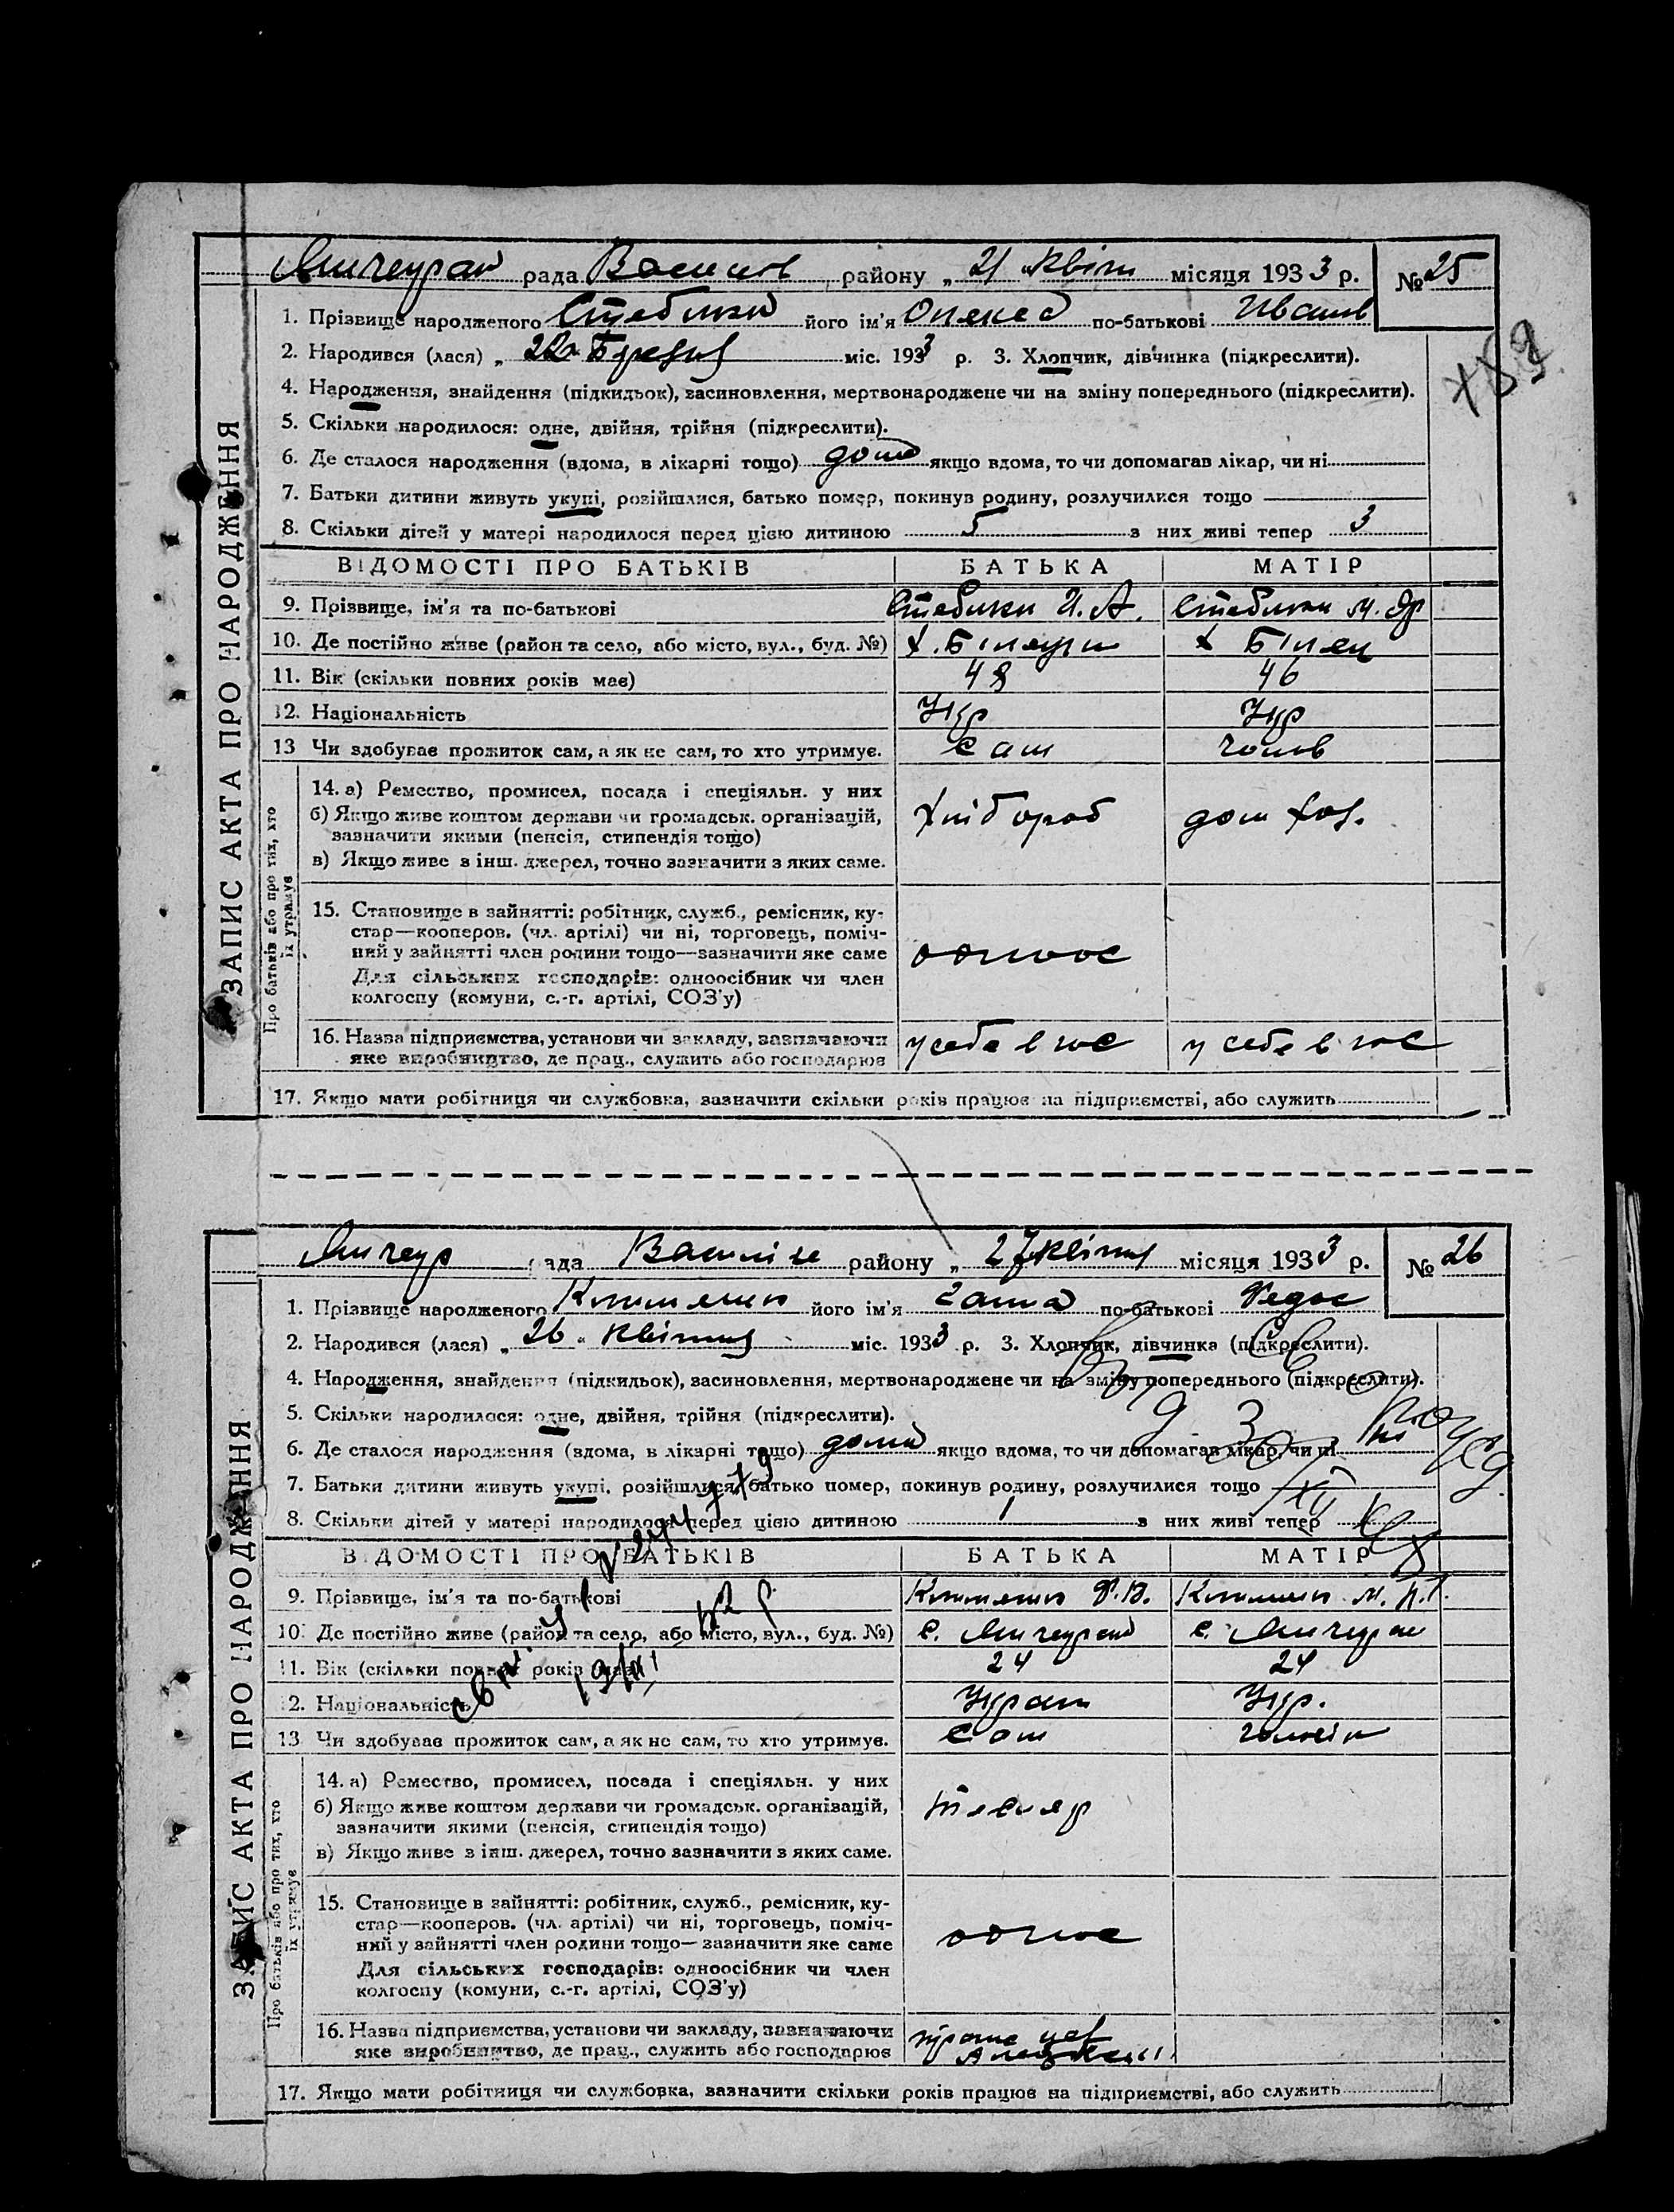 рада району „ 21 „ квітн місяця 1933 р. № 25
1. Прізвище народженого його ім'я по-батькові Иванов
2. Народився (лася) „ 22 Березня міс. 1933 р. 3. Хлопчик, дівчинка (підкреслити).
4. Народження, знайдення (підкидьок), васиновлення, мертвонароджене чи на зміну попереднього (підкреслити).
5. Скільки народилося: одне, двійня, трійня (підкреслити).
6. Де сталося народження (вдома, в лікарні тощо) дома якщо вдома, то чи допомагав лікар, чи ні
7. Батьки дитини живуть укупі, розійшлися, батько помер, покинув родину, розлучилися тощо
8. Скільки дітей у матері народилося перед цією дитиною 5 з них живі тепер 3
ЗАПИС АКТА ПРО НАРОДЖЕННЯ
ВІДОМОСТІ ПРО БАТЬКІВ БАТЬКА МАТІР
9. Прізвище, ім'я та по-батькові И. А.
10. Де постійно живе (район та село, або місто, вул., буд. №)
11. Вік (скільки повних років має) 48 46
12. Національність Укр Укр
13 Чи здобуває прожиток сам, а як не сам, то хто утримує. сам чолов
Про батьків або про тих, хто їх утримує
14. а) Ремество, промисел, посада і спеціяльн. у них
б) Якщо живе коштом держави чи громадськ. організацій,
зазначити якими (пенсія, стипендія тощо) хлібороб дом хоз.
в) Якщо живе з інш. джерел, точно зазначити з яких саме.
15. Становище в зайнятті: робітник, служб., ремісник, ку-
стар—кооперов. (чл. артілі) чи ні, торговець, поміч-
ний у зайнятті член родини тощо—зазначити яке саме одноос
Для сільських господарів: одноосібник чи член
колгоспу (комуни, с.-г. артілі, СОЗ'у)
16. Назва підприємства, установи чи закладу, зазначаючи у себе в гос у себе в гос
яке виробництво, де прац., служить або господарює
17. Якщо мати робітниця чи службовка, зазначити скільки років працює на підприємстві, або служить
рада району „ 27 квітня місяця 1933 р. № 26
1. Прізвище народженого його ім'я Ганна по-батькові Федос
2. Народився (лася) „ 26 „ квітня міс. 1933 р. 3. Хлопчик, дівчинка (підкреслити).
4. Народження, знайдення (підкидьок), васиновлення, мертвонароджене чи на зміну попереднього (підкреслити).
5. Скільки народилося: одне, двійня, трійня (підкреслити).
6. Де сталося народження (вдома, в лікарні тощо) дома якщо вдома, то чи допомагав лікар, чи ні ні
7. Батьки дитини живуть укупі, розійшлися, батько помер, покинув родину, розлучилися тощо
8. Скільки дітей у матері народилося перед цією дитиною 1 з них живі тепер
ЗАПИС АКТА ПРО НАРОДЖЕННЯ
ВІДОМОСТІ ПРО БАТЬКІВ БАТЬКА МАТІР
9. Прізвище, ім'я та по-батькові
10. Де постійно живе (район та село, або місто, вул., буд. №) с. с.
11. Вік (скільки повних років має) 24 24
12. Національність Укр.
13 Чи здобуває прожиток сам, а як не сам, то хто утримує. сам чоловік
Про батьків або про тих, хто їх утримує
14. а) Ремество, промисел, посада і спеціяльн. у них
б) Якщо живе коштом держави чи громадськ. організацій, тесляр
зазначити якими (пенсія, стипендія тощо)
в) Якщо живе з інш. джерел, точно зазначити з яких саме.
15. Становище в зайнятті: робітник, служб., ремісник, ку-
стар—кооперов. (чл. артілі) чи ні, торговець, поміч-
ний у зайнятті член родини тощо—зазначити яке саме одноос
Для сільських господарів: одноосібник чи член
колгоспу (комуни, с.-г. артілі, СОЗ'у)
16. Назва підприємства, установи чи закладу, зазначаючи
яке виробництво, де прац., служить або господарює
17. Якщо мати робітниця чи службовка, зазначити скільки років працює на підприємстві, або служить